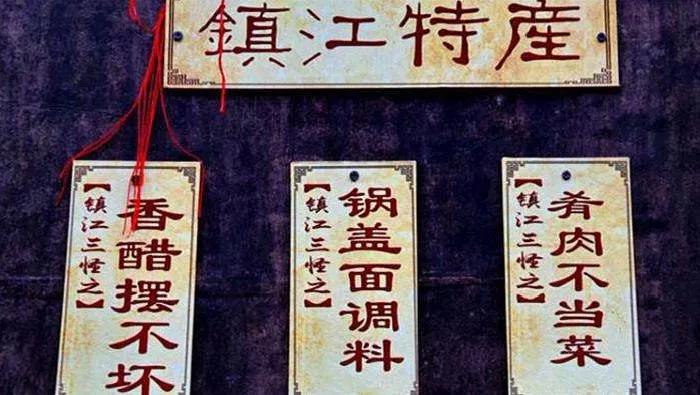 鎮江特産
【镇江三怪之】
香醋摆不坏
【镇江三怪之】
锅盖面调料
【镇江三怪之】
肴肉不当菜